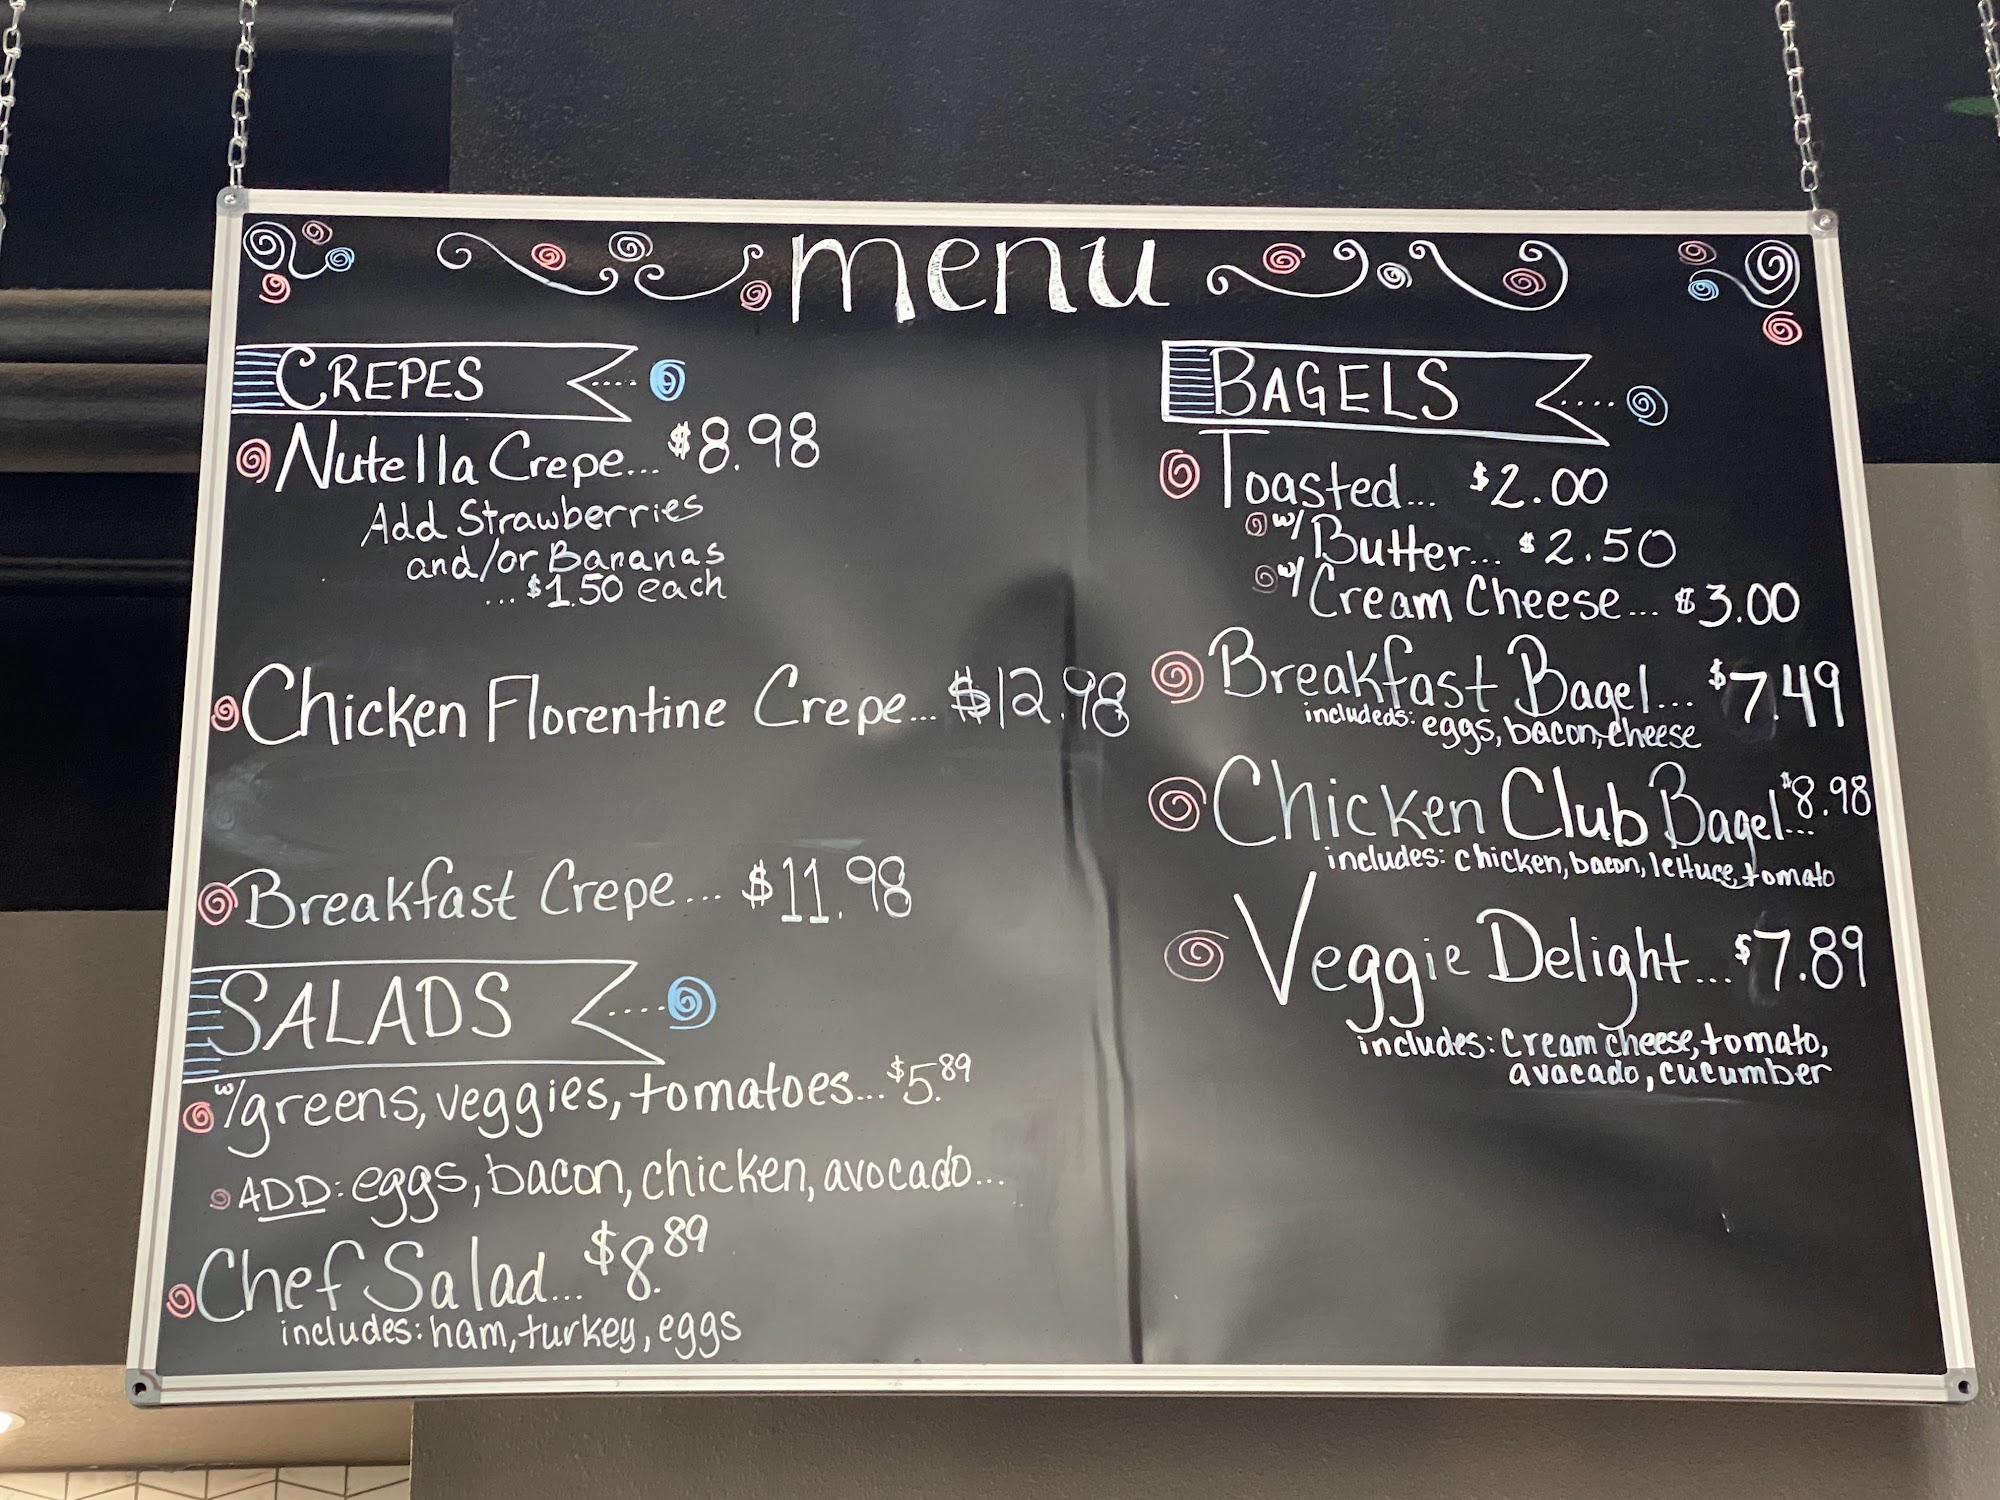 menu
CREPES
Nutella Crepe... $8.98
Add Strawberries
and/or Bananas
... $1.50 each
Chicken Florentine Crepe... $12.98
Breakfast Crepe... $11.98
SALADS
w/greens, veggies, tomatoes... $5.89
ADD: eggs, bacon, chicken, avocado...
Chef Salad... $8.89
includes: ham, turkey, eggs
BAGELS
Toasted... $2.00
w/ Butter... $2.50
w/ Cream Cheese... $3.00
Breakfast Bagel... $7.49
includeds: eggs, bacon, cheese
Chicken Club Bagel... $8.98
includes: chicken, bacon, lettuce, tomato
Veggie Delight... $7.89
includes: cream cheese, tomato,
avacado, cucumber